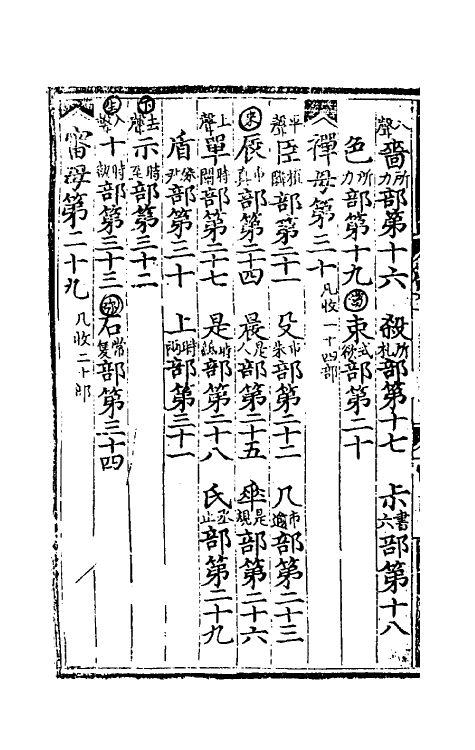 入聲嗇所力部第十六　殺所札部第十七　尗書六部第十八
色所力部第十九　束式欲部第二十
禪母第三十凡收一十四部
平聲臣植鄰部第二十一　殳市朱部第二十二　几市逾部第二十三
辰市真部第二十四　晨是人部第二十五　𠂹是規部第二十六
上聲單時闡部第二十七　是時紙部第二十八　氏丞止部第二十九
盾食尹部第三十　上時兩部第三十一
去聲示時至部第三十二
入聲十時執部第三十三　石常隻部第三十四
審母第二十九凡收二十部